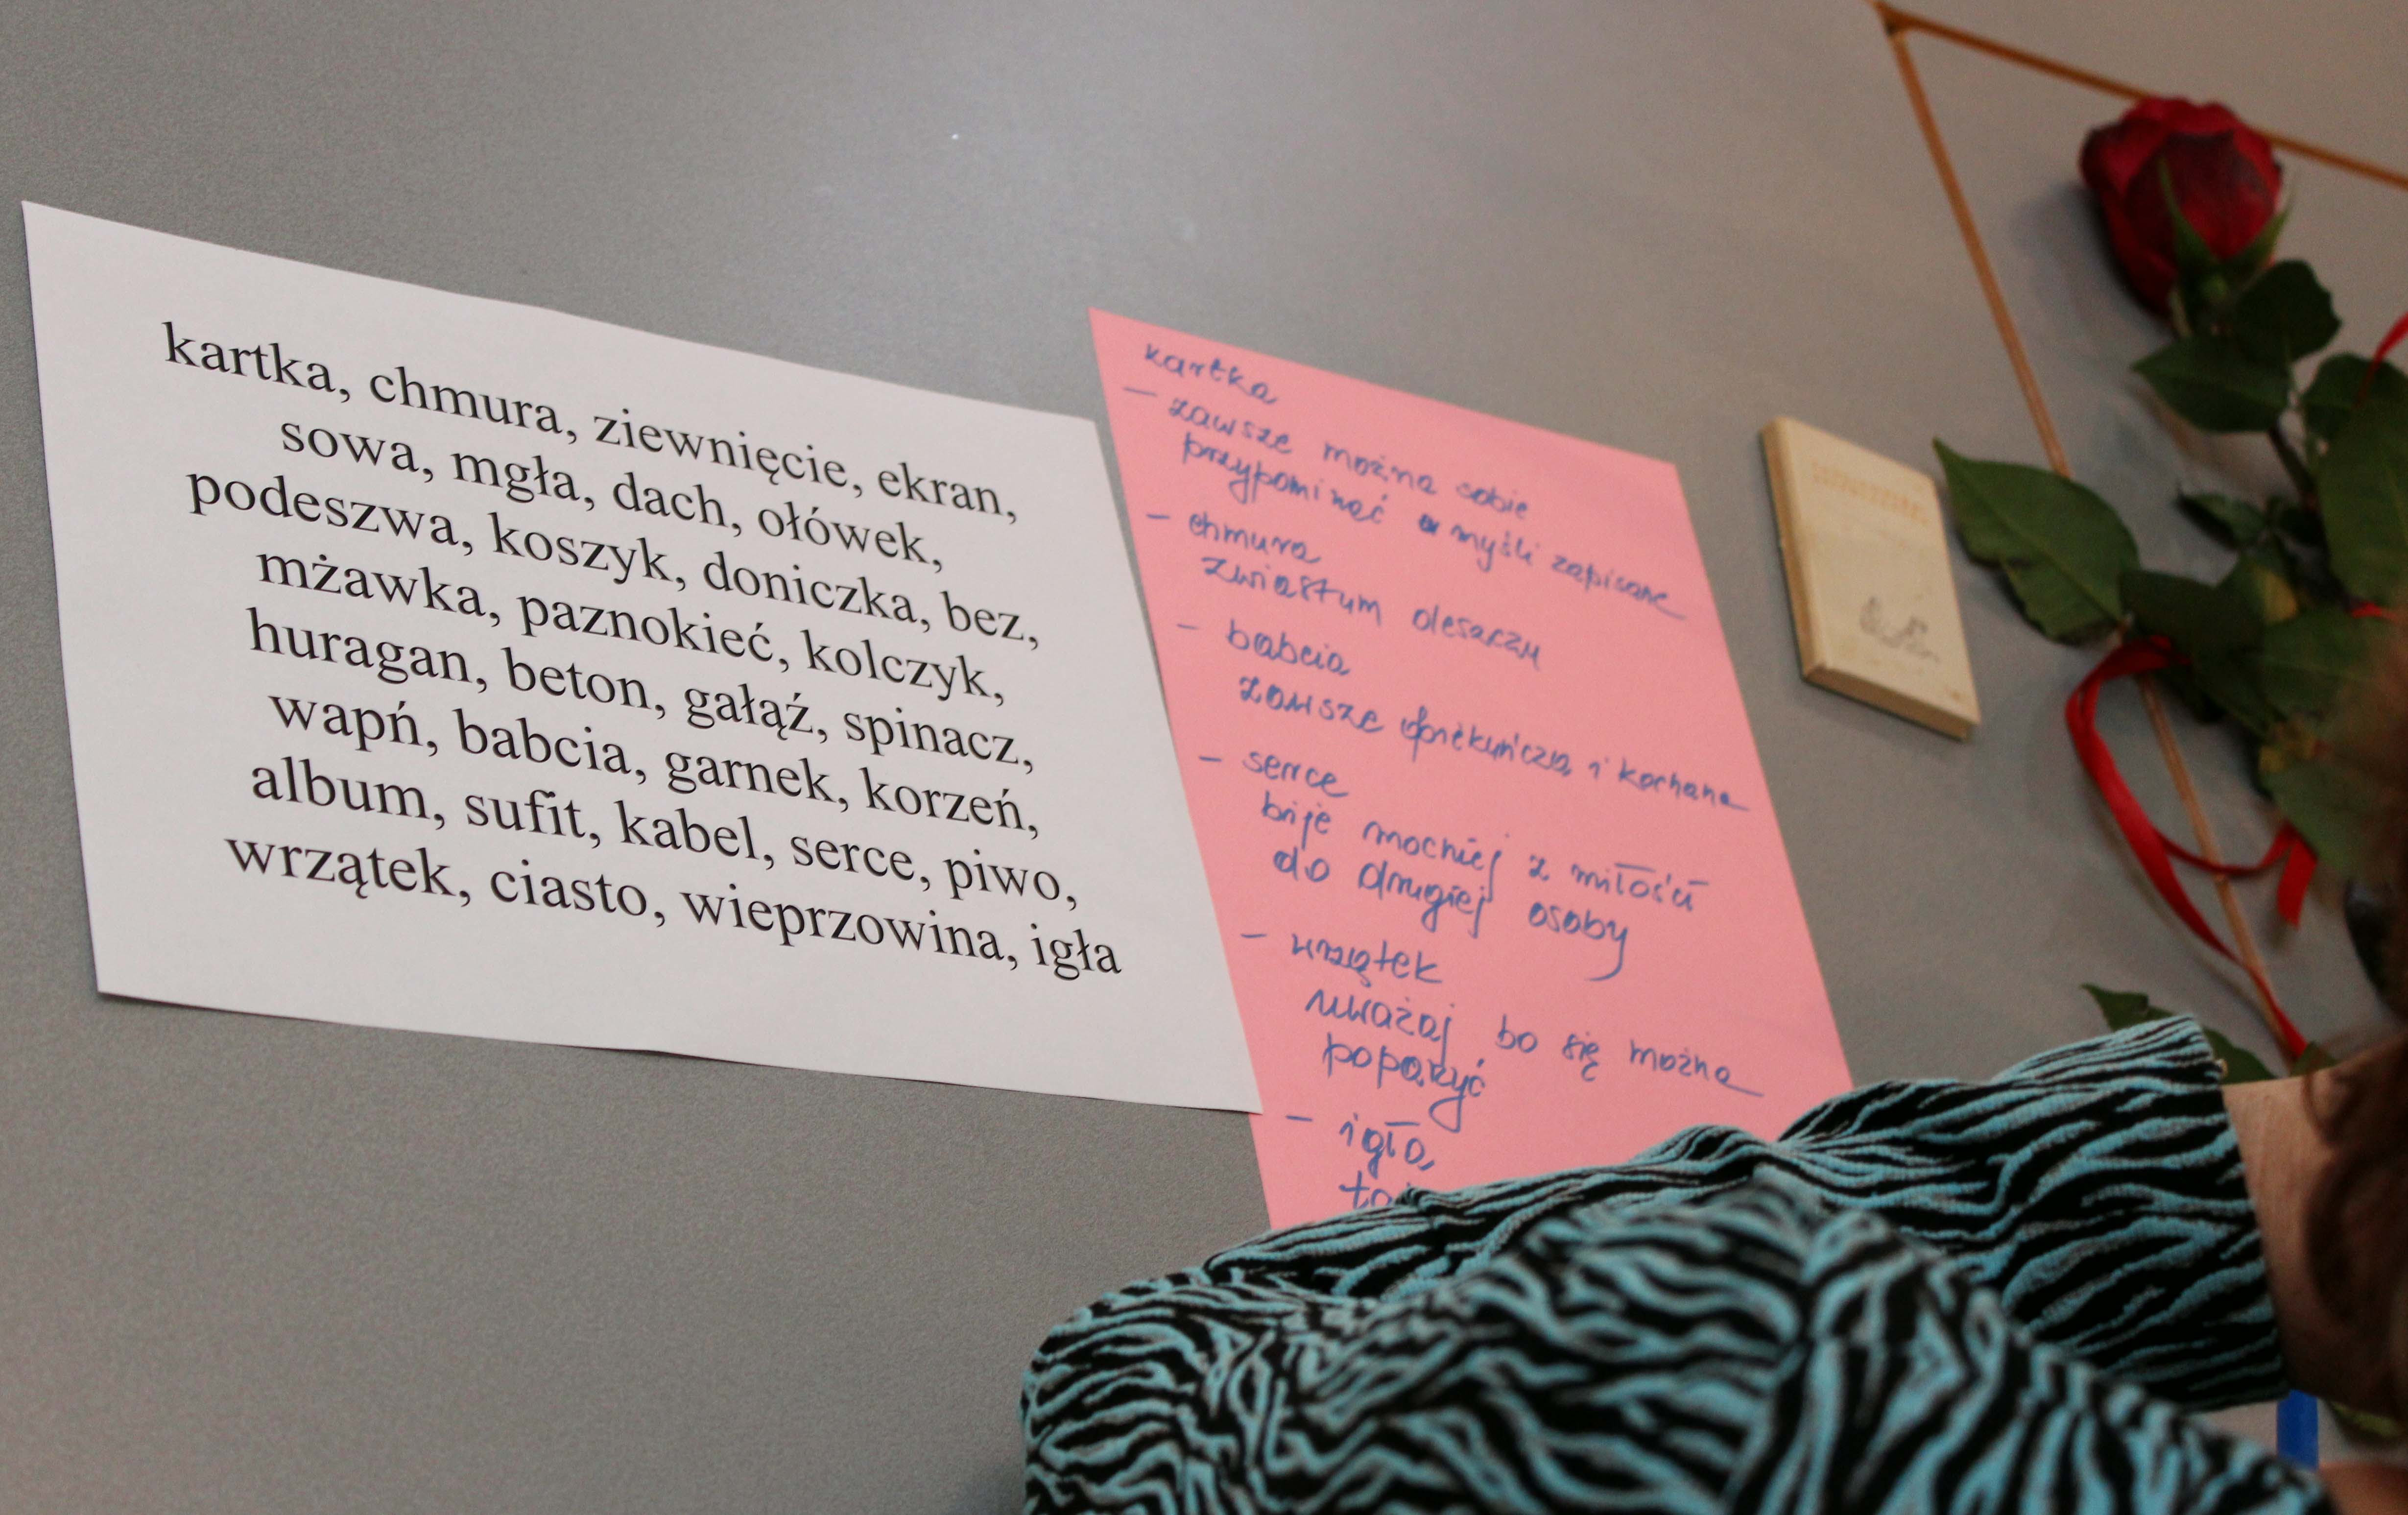 kartka, chmura, ziewnięcie, ekran,
sowa, mgła, dach, ołówek,
podeszwa, koszyk, doniczka, bez,
mżawka, paznokieć, kolczyk,
huragan, beton, gałąź, spinacz,
wapń, babcia, garnek, korzeń,
album, sufit, kabel, serce, piwo,
wrzątek, ciasto, wieprzowina, igła
kartka
– zawsze można sobie
przypominać myśli zapisane
– chmura
zwiastum deszczu
– babcia
zawsze opiekuńcza i kochana
– serce
bije mocniej z miłości
do drugiej osoby
– wrzątek
uważaj bo się można
poparzyć
– igła